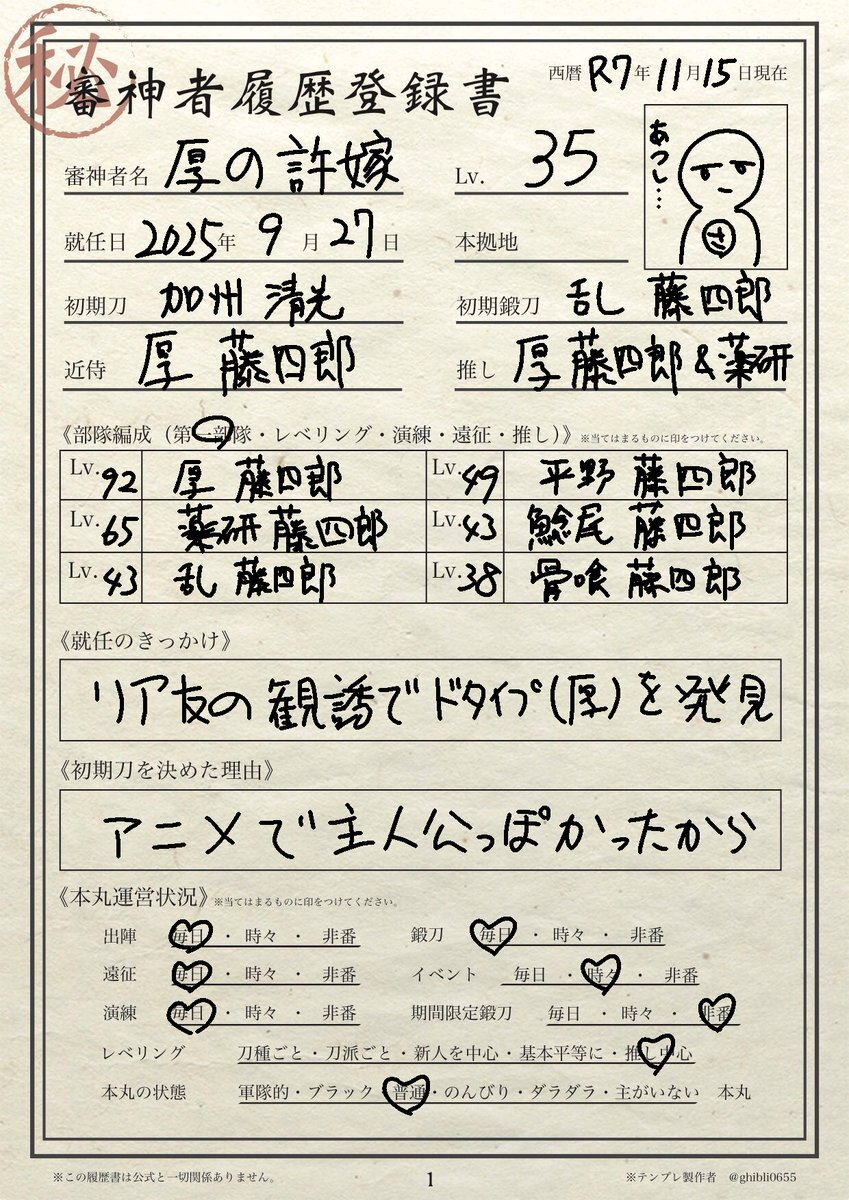 秘
審神者履歴登録書
西暦 R7年 11月 15日現在
審神者名 厚の許嫁
Lv. 35
あつし…
さ
就任日 2025年 9月 27日
本拠地
初期刀 加州 清光
初期鍛刀 乱 藤四郎
近侍 厚 藤四郎
推し 厚 藤四郎 & 薬研
《部隊編成（第一部隊・レベリング・演練・遠征・推し）》※当てはまるものに印をつけてください。
Lv.92 厚 藤四郎 Lv.49 平野 藤四郎
Lv.65 薬研 藤四郎 Lv.43 鯰尾 藤四郎
Lv.43 乱 藤四郎 Lv.38 骨喰 藤四郎
《就任のきっかけ》
リア友の観誘でドタイプ(厚)を発見
《初期刀を決めた理由》
アニメで主人公っぽかったから
《本丸運営状況》※当てはまるものに印をつけてください。
出陣 毎日・時々・非番 鍛刀 毎日・時々・非番
遠征 毎日・時々・非番 イベント 毎日・時々・非番
演練 毎日・時々・非番 期間限定鍛刀 毎日・時々・非番
レベリング 刀種ごと・刀派ごと・新人を中心・基本平等に・推し中心
本丸の状態 軍隊的・ブラック・普通・のんびり・ダラダラ・主がいない 本丸
※この履歴書は公式と一切関係ありません。
1
※テンプレ製作者 @ghibli0655